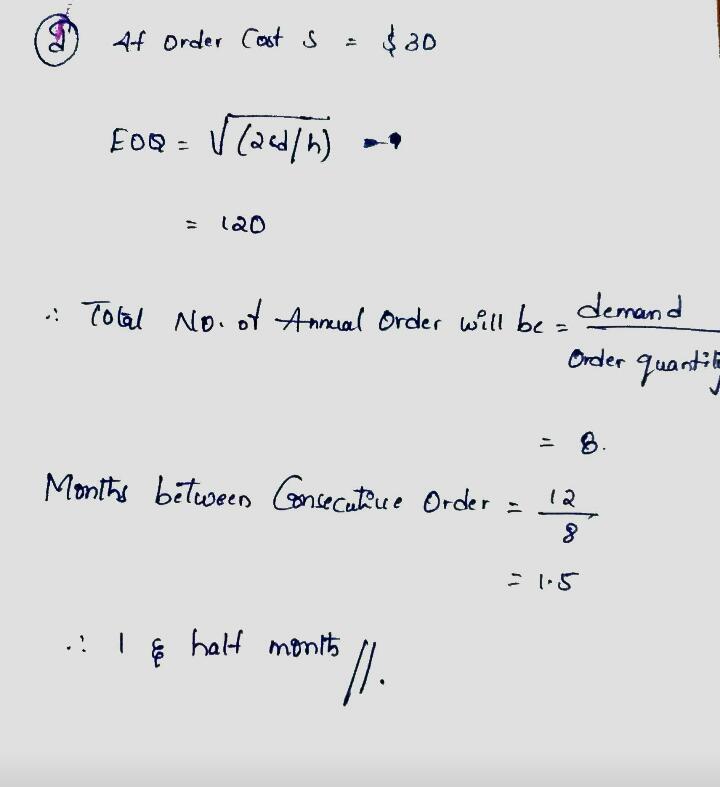 At Order Cost S = $30
EOQ = √(2sd/h)
= 120
∴ Total No. of Annual Order will be = demand
Order quantit
= 8.
Months between Consecutive Order = 12
8
= 1.5
∴ 1 & half month //.